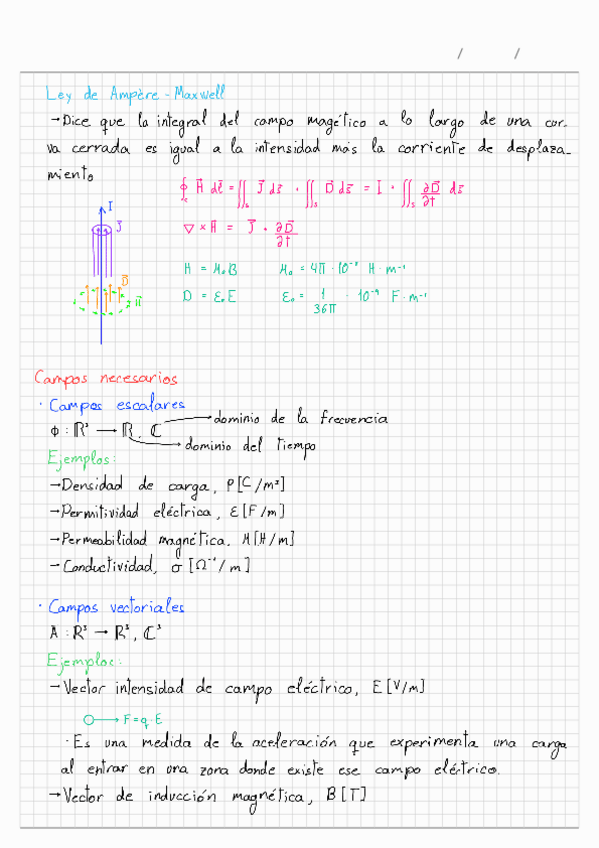 / /
Ley de Ampère-Maxwell
→Dice que la integral del campo magético a lo largo de una cur-
va cerrada es igual a la intensidad más la corriente de desplaza-
miento
∮c H⃗ dl⃗ = ∬s J⃗ ds⃗ + ∬s D⃗ ds⃗ = I + ∬s ∂D⃗/∂t ds⃗
∇ × H⃗ = J⃗ + ∂D⃗/∂t
I
J⃗
D⃗
H⃗
H = μ₀B μ₀ = 4π·10⁻⁷ H·m⁻¹
D = ε₀E ε₀ = 1/36π · 10⁻⁹ F·m⁻¹
Campos necesarios
· Campos escalares
→dominio de la frecuencia
φ : ℝ³ → ℝ, ℂ
→dominio del tiempo
Ejemplos:
→Densidad de carga, ρ[C/m³]
→Permitividad eléctrica, ε[F/m]
→Permeabilidad magnética, μ[H/m]
→Conductividad, σ[Ω⁻¹/m]
· Campos vectoriales
A : ℝ³ → ℝ³, ℂ³
Ejemplos:
→Vector intensidad de campo eléctrico, E[V/m]
→F=q·E
· Es una medida de la aceleración que experimenta una carga
al entrar en una zona donde existe ese campo eléctrico.
→Vector de inducción magnética, B[T]